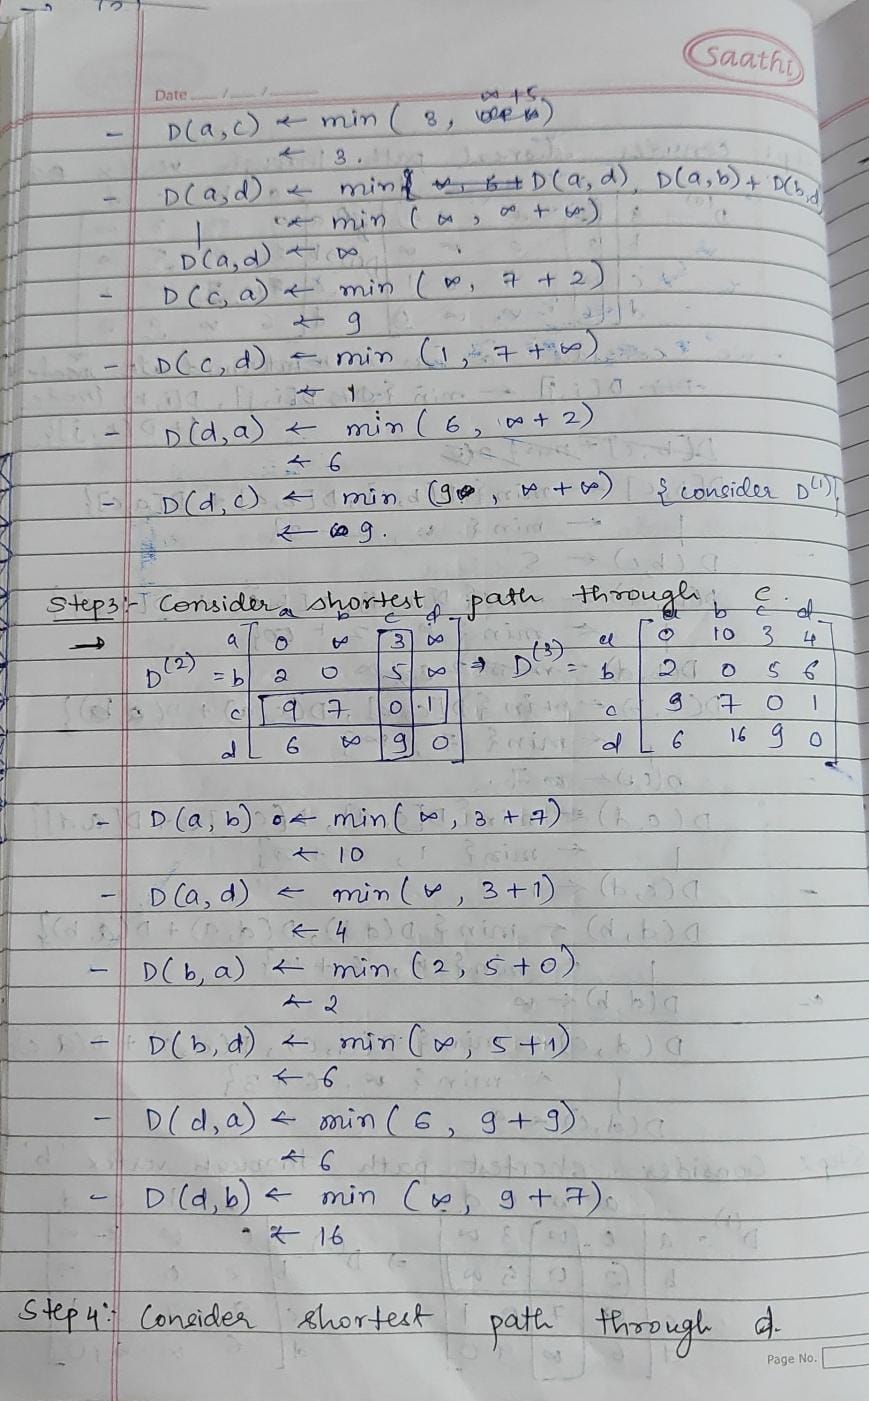 saathi
Date / /
- D(a,c) ← min( 3, ∞+5 )
← 3.
- D(a,d) ← min{ D(a,d), D(a,b) + D(b,d
← min ( ∞ , ∞ + ∞ )
D(a,d) ← ∞
- D(c,a) ← min ( ∞, 7 + 2)
← 9
- D(c,d) ← min (1, 7 + ∞)
← 1
- D(d,a) ← min ( 6, ∞ + 2)
← 6
- D(d,c) ← min (9, ∞ + ∞) { consider D(1)}
← 9.
Step3:- Consider shortest path through c.
a b c d a b c d
→ a 0 ∞ 3 ∞ a 0 10 3 4
D(2) = b 2 0 5 ∞ ⇒ D(3) = b 2 0 5 6
c 9 7 0 1 c 9 7 0 1
d 6 ∞ 9 0 d 6 16 9 0
- D(a,b) ← min( ∞, 3 + 7)
← 10
- D(a,d) ← min( ∞, 3+1)
← 4
- D(b,a) ← min (2, 5+0)
← 2
- D(b,d) ← min ( ∞, 5+1)
← 6
- D(d,a) ← min( 6, 9+9)
← 6
- D(d,b) ← min ( ∞, 9+7)
← 16
Step 4:- Consider shortest path through d.
Page No.